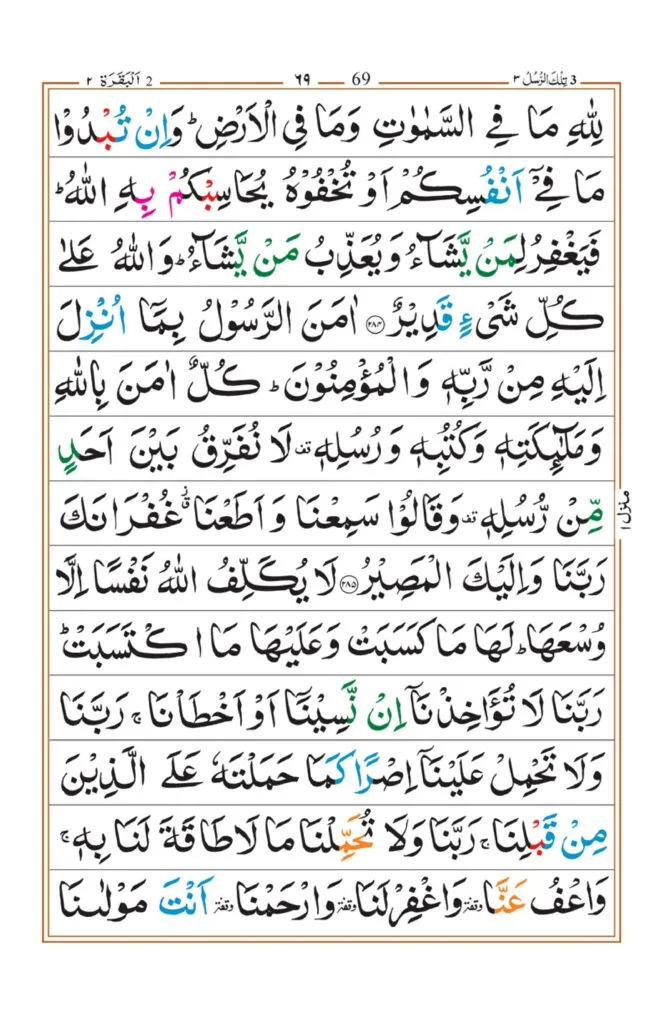 3 تِلْكَ الرُّسُلُ ٣ 69 ٦٩ 2 اَلْبَقَرَة ٢
لِلّٰهِ مَا فِي السَّمٰوٰتِ وَمَا فِي الْاَرْضِ ؕ وَاِنْ تُبْدُوْا
مَا فِيْۤ اَنْفُسِكُمْ اَوْ تُخْفُوْهُ يُحَاسِبْكُمْ بِهِ اللّٰهُ ؕ
فَيَغْفِرُ لِمَنْ يَّشَآءُ وَيُعَذِّبُ مَنْ يَّشَآءُ ؕ وَاللّٰهُ عَلٰى
كُلِّ شَيْءٍ قَدِيْرٌ ﴿٢٨٤﴾ اٰمَنَ الرَّسُوْلُ بِمَاۤ اُنْزِلَ
اِلَيْهِ مِنْ رَّبِّهٖ وَالْمُؤْمِنُوْنَ ؕ كُلٌّ اٰمَنَ بِاللّٰهِ
وَمَلٰٓئِكَتِهٖ وَكُتُبِهٖ وَرُسُلِهٖ قف لَا نُفَرِّقُ بَيْنَ اَحَدٍ
مِّنْ رُّسُلِهٖ قف وَقَالُوْا سَمِعْنَا وَاَطَعْنَا ق ز غُفْرَانَكَ
رَبَّنَا وَاِلَيْكَ الْمَصِيْرُ ﴿٢٨٥﴾ لَا يُكَلِّفُ اللّٰهُ نَفْسًا اِلَّا
وُسْعَهَا ؕ لَهَا مَا كَسَبَتْ وَعَلَيْهَا مَا اكْتَسَبَتْ ؕ
رَبَّنَا لَا تُؤَاخِذْنَاۤ اِنْ نَّسِيْنَاۤ اَوْ اَخْطَاْنَا ۚ رَبَّنَا
وَلَا تَحْمِلْ عَلَيْنَاۤ اِصْرًا كَمَا حَمَلْتَهٗ عَلَى الَّذِيْنَ
مِنْ قَبْلِنَا ۚ رَبَّنَا وَلَا تُحَمِّلْنَا مَا لَا طَاقَةَ لَنَا بِهٖ ۚ
وَاعْفُ عَنَّا وقفة وَاغْفِرْ لَنَا وقفة وَارْحَمْنَا وقفة اَنْتَ مَوْلٰىنَا
منزل ١